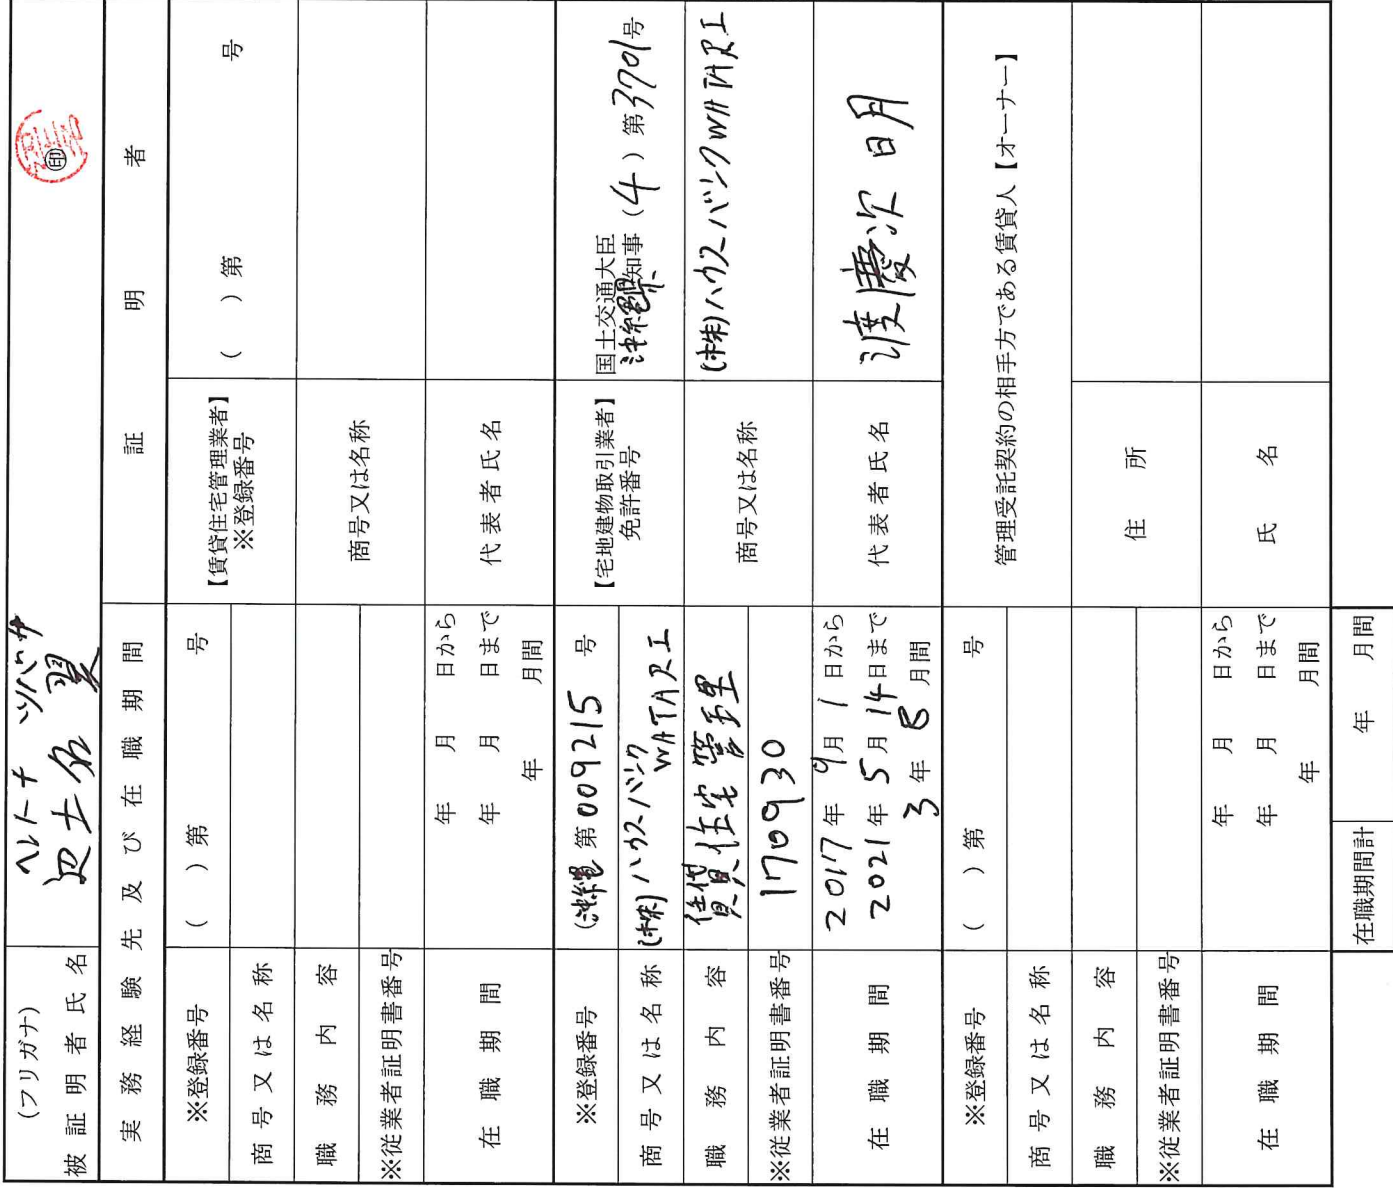 (フリガナ) ヘントナ ツバサ
被証明者氏名 辺土名 翼 ㊞
実務経験先及び在職期間 証明者
※登録番号 ( )第 号
【賃貸住宅管理業者】
※登録番号 ( )第 号
商号又は名称
商号又は名称
職務内容
※従業者証明書番号
代表者氏名
在職期間 年 月 日から
年 月 日まで
年 月間
※登録番号 (沖縄 第009215 号
【宅地建物取引業者】
免許番号
国土交通大臣
沖縄県知事 (4)第3701号
商号又は名称 (株)ハウスバンク
WATARI
商号又は名称 (株)ハウスバンクWATARI
職務内容 賃貸住宅管理
※従業者証明書番号 170930
代表者氏名 渡慶次 明
在職期間 2017年9月1日から
2021年5月14日まで
3年8月間
※登録番号 ( )第 号
管理受託契約の相手方である賃貸人【オーナー】
商号又は名称
職務内容
住所
※従業者証明書番号
氏名
在職期間 年 月 日から
年 月 日まで
年 月間
在職期間計 年 月間